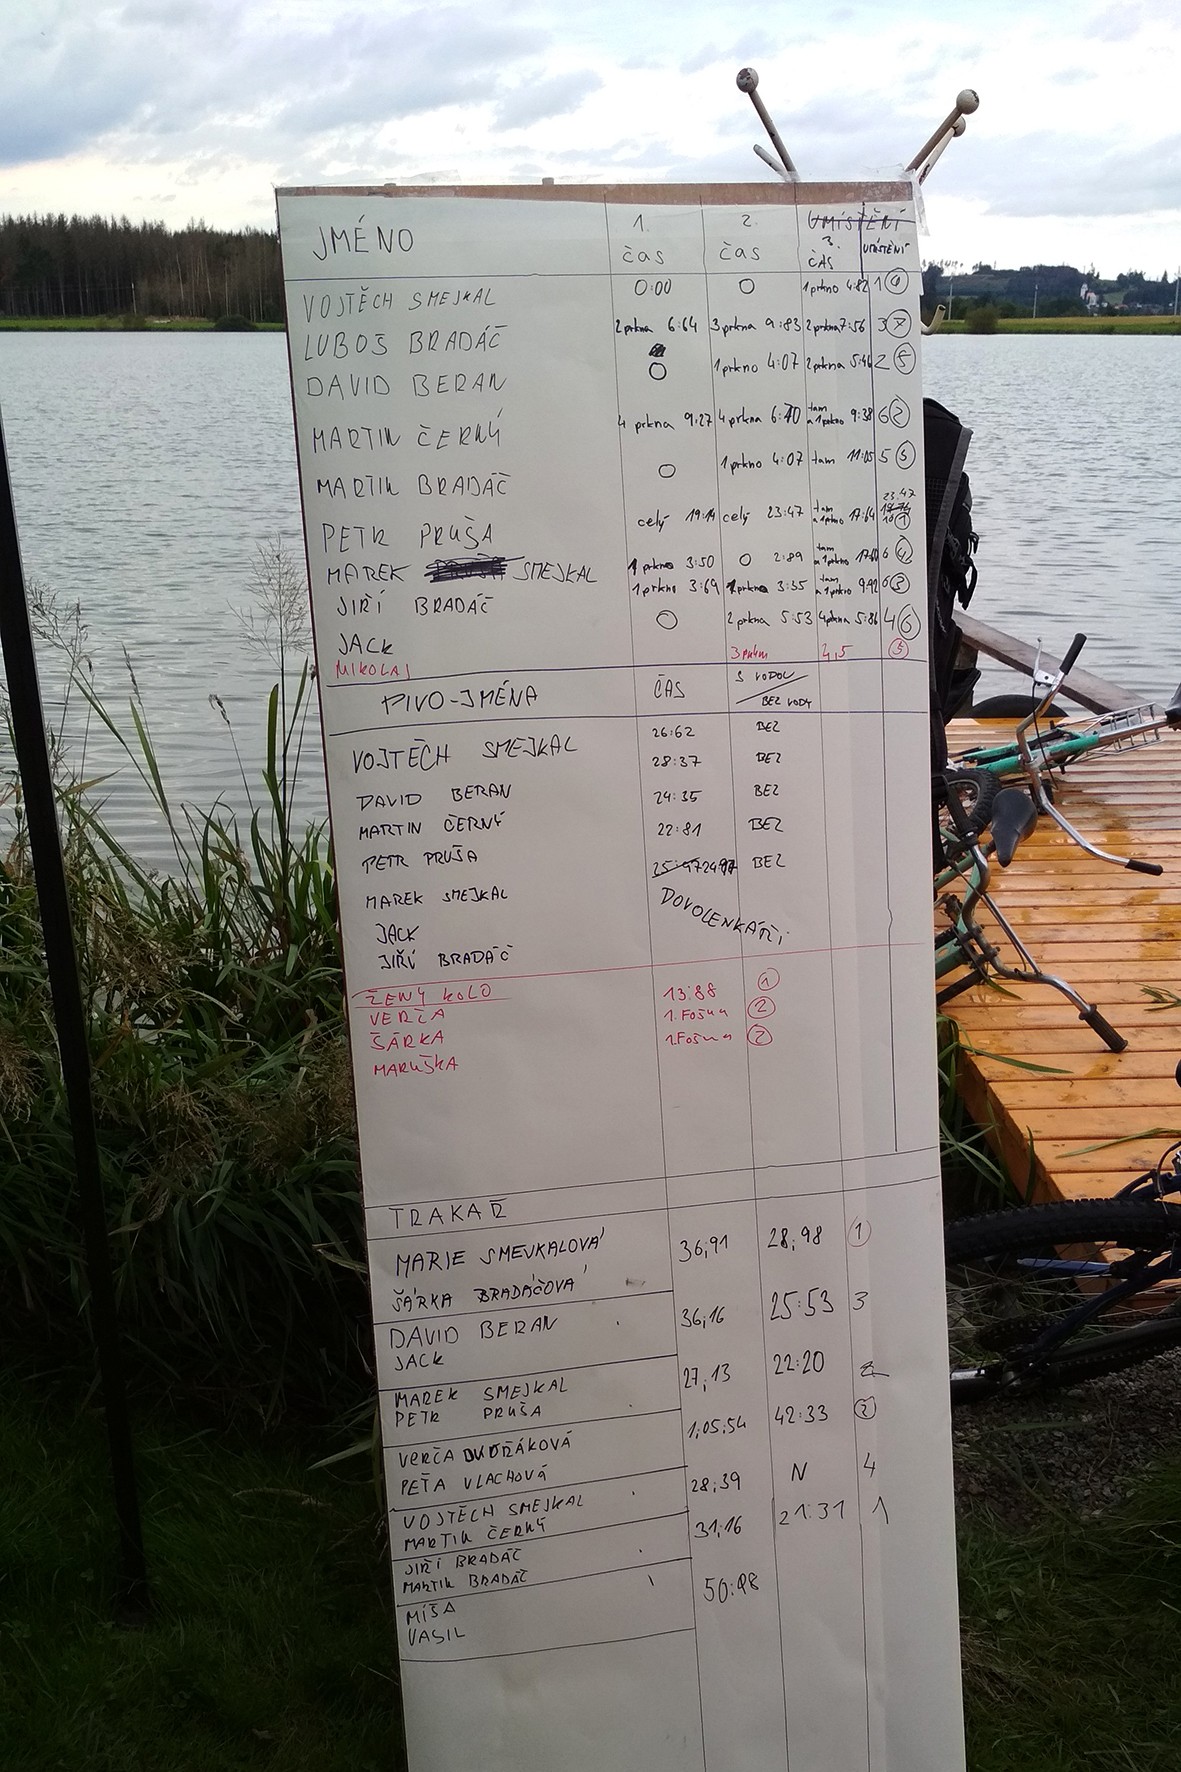 JMÉNO 1. ČAS 2. ČAS 3. ČAS UMÍSTĚNÍ
VOJTĚCH SMEJKAL 0:00 O 1 prkno 4:82 1
LUBOŠ BRADÁČ 2 prkna 6:64 3 prkna 9:83 2 prkna 7:56 3 7
DAVID BERAN O 1 prkno 4:07 2 prkna 5:46 2 5
MARTIN ČERNÝ 4 prkna 9:27 4 prkna 6:70 tam a 1 prkno 9:38 6 2
MARTIN BRADÁČ O 1 prkno 4:07 tam 11:05 5 5
PETR PRUŠA celý 19:14 celý 23:47 tam a 1 prkno 17:64 23,47 10 1
MAREK SMEJKAL 1 prkno 3:50 O 2:89 tam a 1 prkno 6 4
JIŘÍ BRADÁČ 1 prkno 3:69 1 prkno 3:55 tam a 1 prkno 9:92 6 3
JACK O 2 prkna 5:53 4 prkna 5:86 4 6
MIKOLAJ 3 4,5 5
PIVO-JMÉNA ČAS S VODOU / BEZ VODY
VOJTĚCH SMEJKAL 26:62 BEZ
DAVID BERAN 28:37 BEZ
MARTIN ČERNÝ 24:35 BEZ
PETR PRUŠA 22:81 BEZ
MAREK SMEJKAL BEZ
JACK DOVOLENKÁŘI
JIŘÍ BRADÁČ
ŽENY KOLO
VERČA 13:88 1
ŠÁRKA 1. FOŠNA 2
MARUŠKA 1. FOŠNA 2
TRAKAŘ
MARIE SMEJKALOVÁ 36,91 28,98 1
ŠÁRKA BRADÁČOVÁ
DAVID BERAN 36,16 25:53 3
JACK
MAREK SMEJKAL 27,13 22:20 2
PETR PRUŠA
VERČA DVOŘÁKOVÁ 1,05,54 42:33 2
PEŤA VLACHOVÁ
VOJTĚCH SMEJKAL 28,39 N 4
MARTIN ČERNÝ
JIŘÍ BRADÁČ 31,16 21:31 1
MARTIN BRADÁČ
MÍŠA 50:98
VASIL